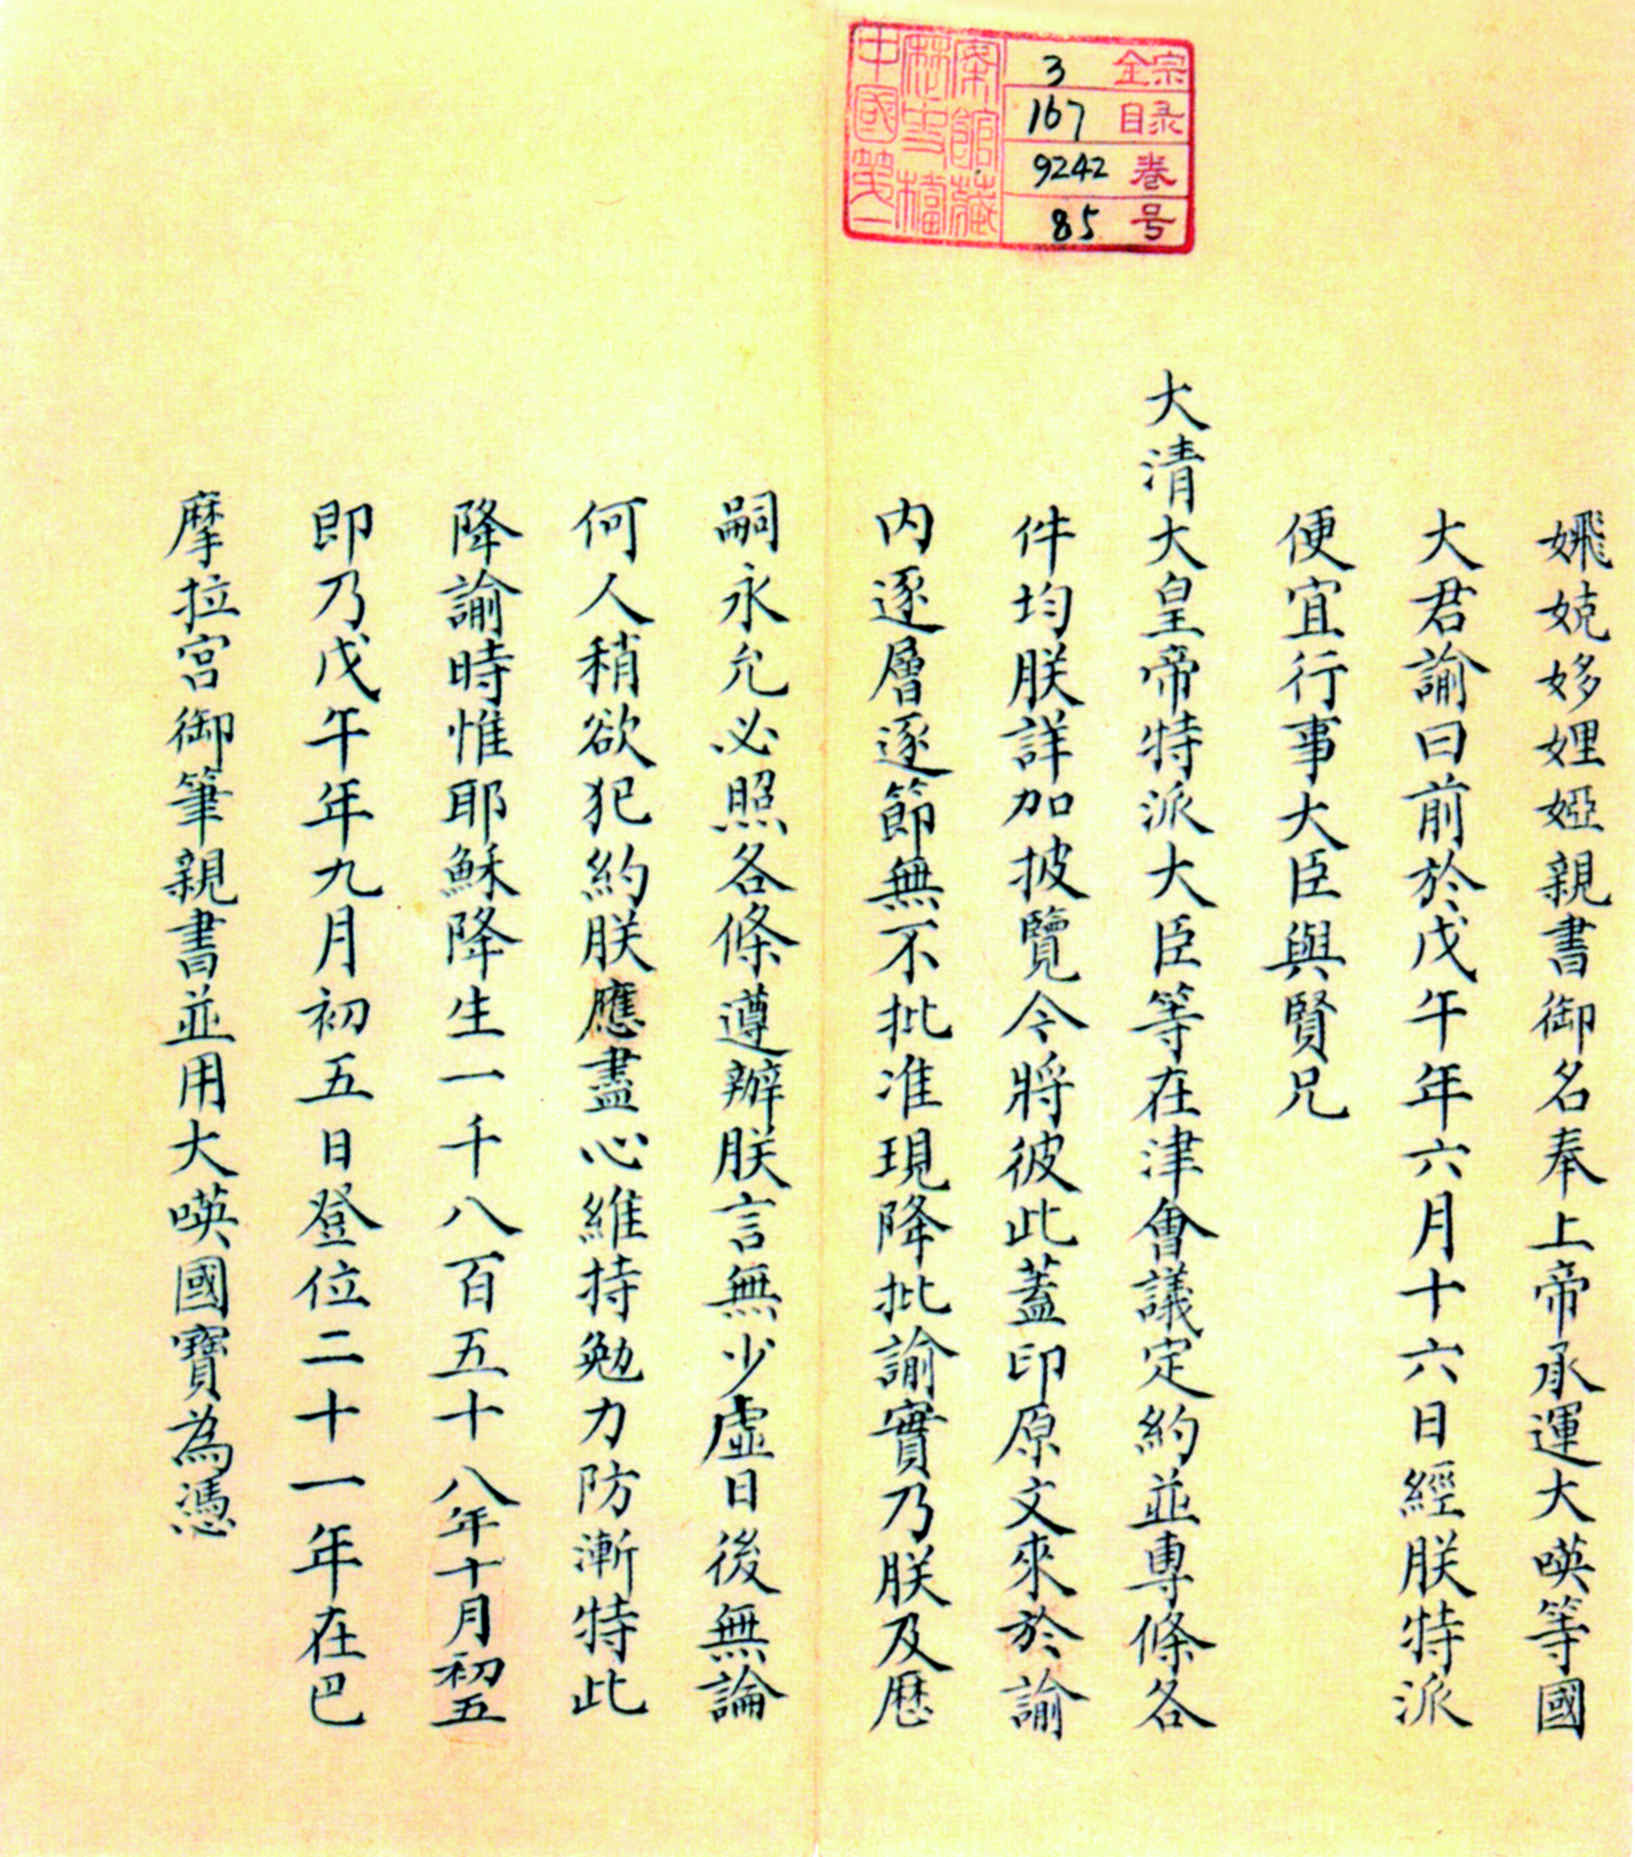 全宗 3
目录 167
卷 9242
号 85
中國第一
歷史檔
案館藏
娔姼娌婭親書御名奉上帝承運大𠸄等國
大君諭曰前於戊午年六月十六日經朕特派
便宜行事大臣與賢兄
大清大皇帝特派大臣等在津會議定約並專條各
件均朕詳加披覽今將彼此蓋印原文來於諭
内逐層逐節無不批准現降批諭實乃朕及歷
嗣永允必照各條遵辦朕言無少虛日後無論
何人稍欲犯約朕應盡心維持勉力防漸特此
降諭時惟耶穌降生一千八百五十八年十月初五
即乃戊午年九月初五日登位二十一年在巴
摩拉宮御筆親書並用大𠸄國寶為憑